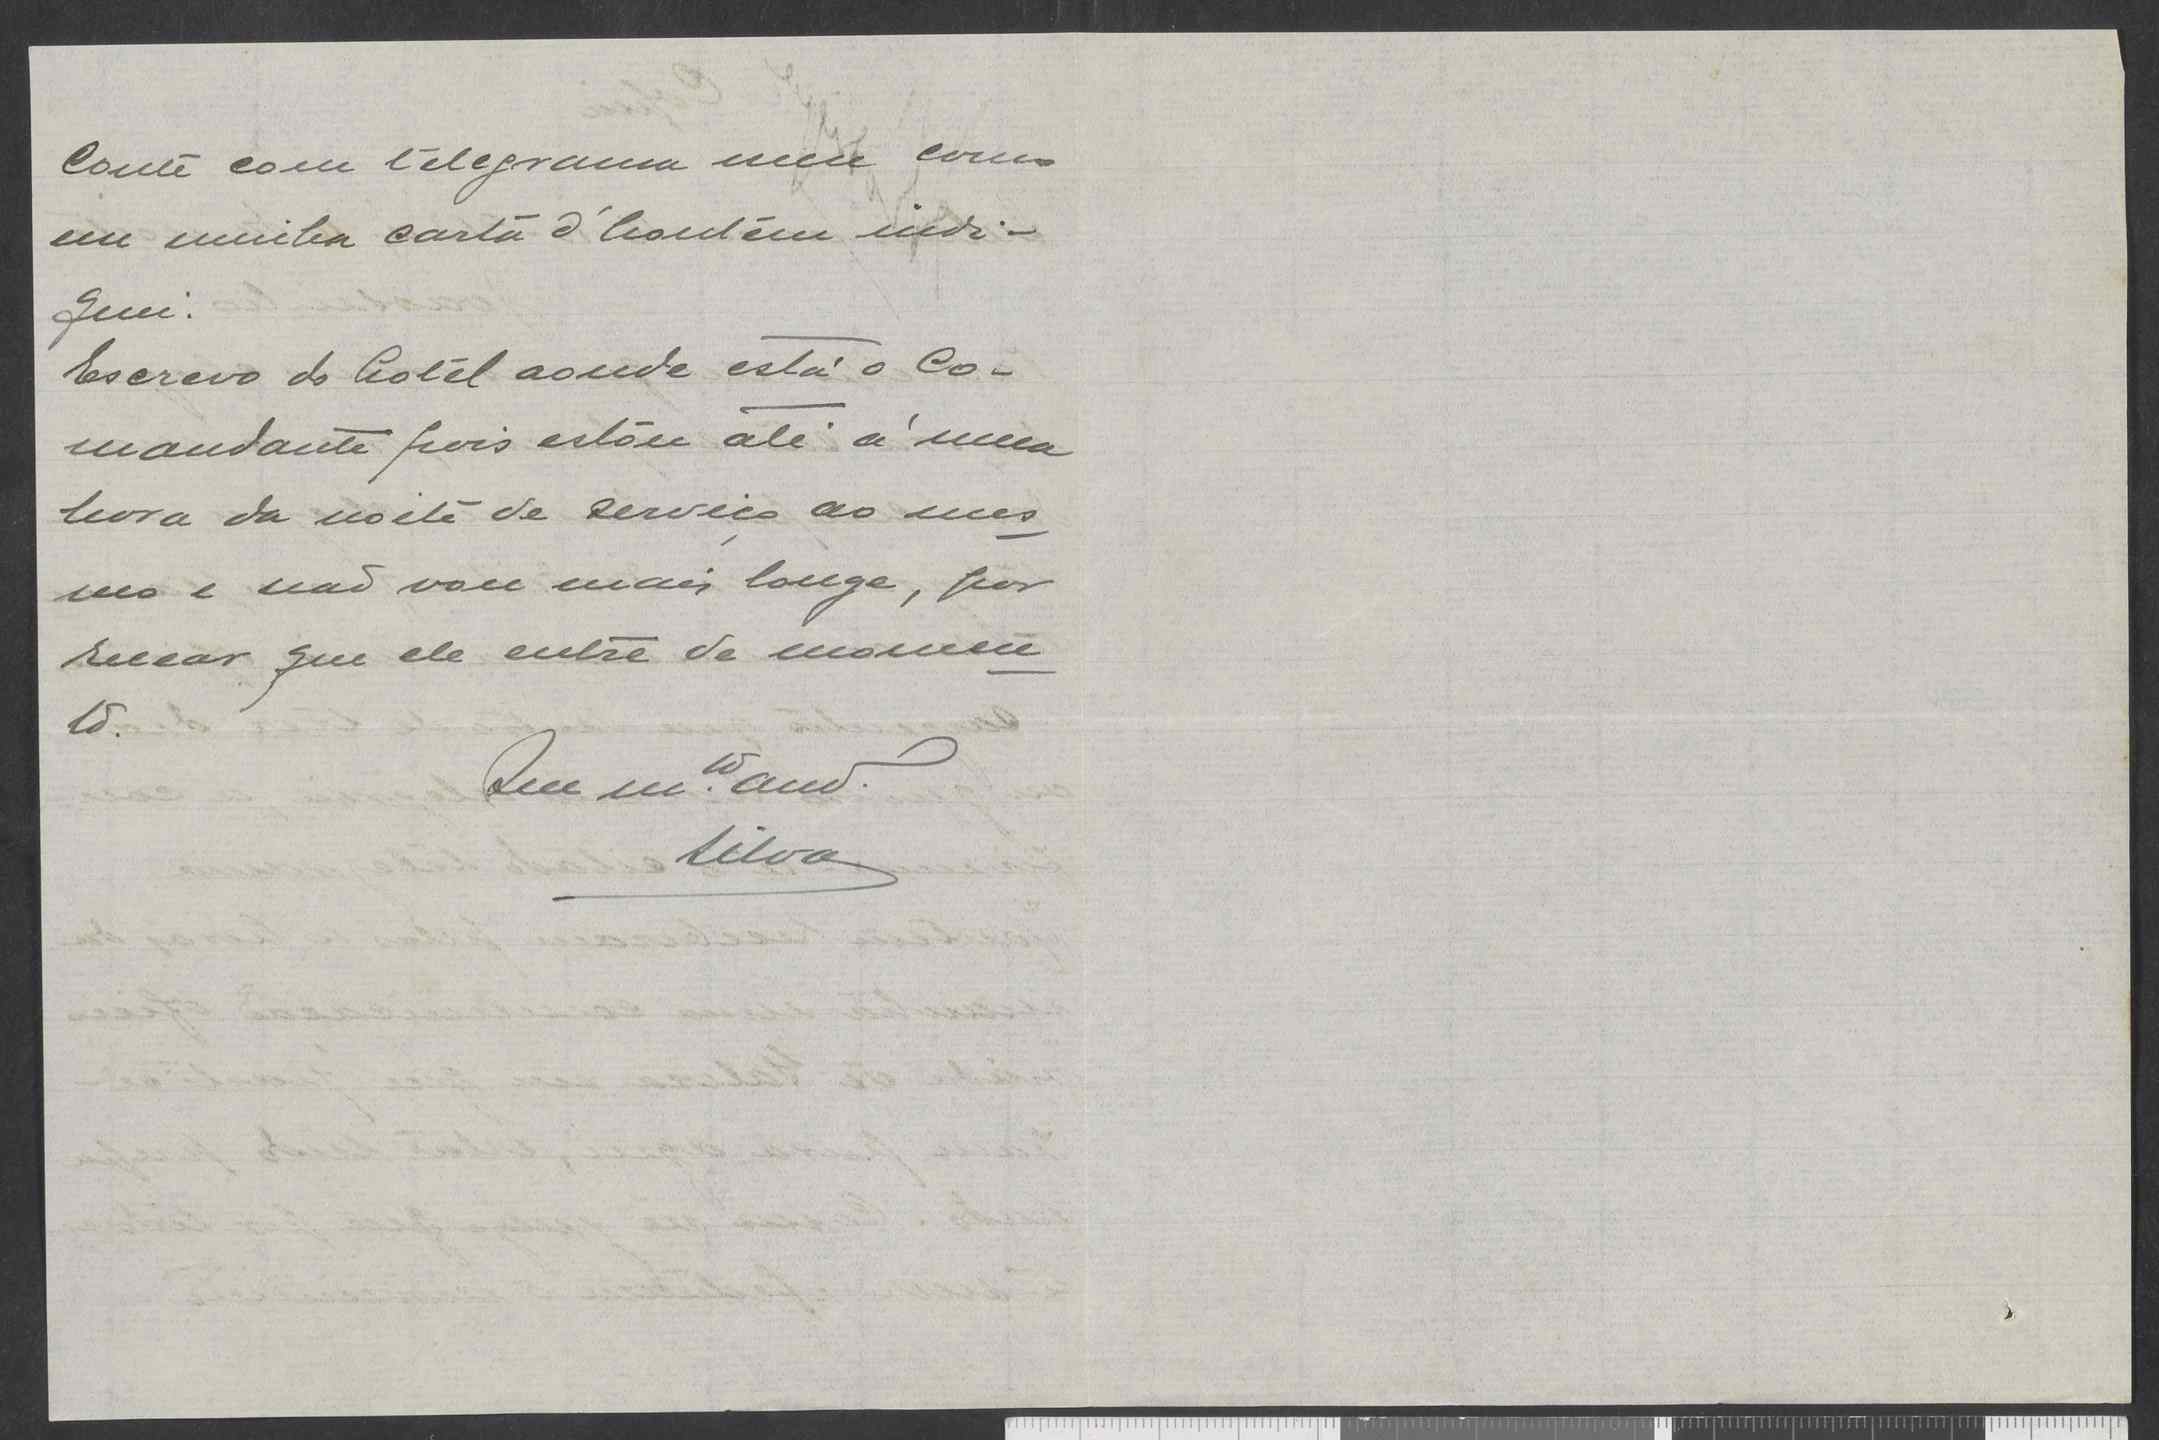 Conte com telegrama meu como
em minha carta d'hontem indi-
quei.
Escrevo do hotel aonde está o Co-
mandante pois estou até á uma
hora da noite de serviço ao mes
mo e não vou mais longe, por
recear que ele entre de momen
to.
Seu m.to am.o
Silva